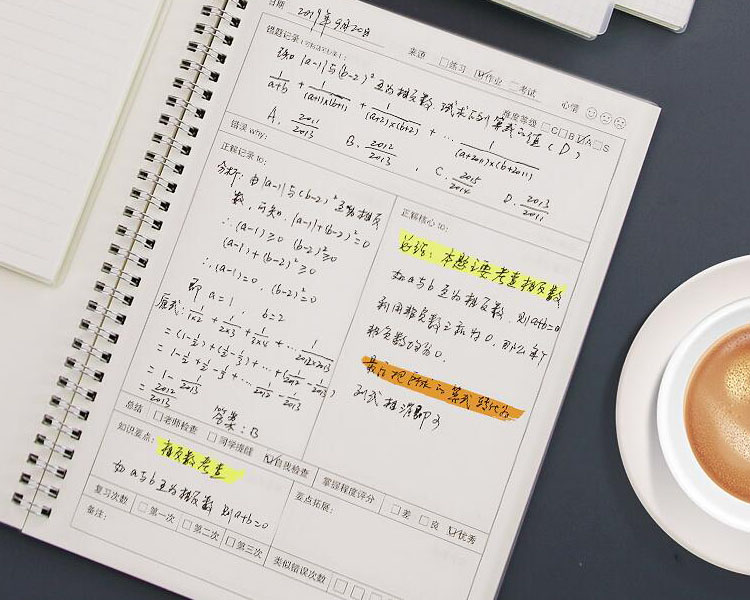 日期 2019年9月20日
错题记录
来源 □练习 ☑作业 □考试 心情
已知 |a-1| 与 (b-2)² 互为相反数, 试求下列算式的值 (D)
1/(a+b) + 1/((a+1)×(b+1)) + 1/((a+2)×(b+2)) + … 1/((a+2011)×(b+2011))
难度等级 □C □B ☑A □S
A. 2011/2013 B. 2012/2013 C. 2015/2014 D. 2013/2011
错误 why:
正解记录 to:
分析: 由|a-1|与(b-2)²互为相反
数, 可知, |a-1|+(b-2)²=0
∴(a-1)≥0 (b-2)²≥0
(a-1)+(b-2)²≥0
∴(a-1)=0, (b-2)²=0
即 a=1, b=2
原式: 1/1×2 + 1/2×3 + 1/3×4 + … 1/2012×2013
= (1-1/2)+(1/2-1/3)+…+(1/2012-1/2013)
= 1-1/2+1/2-1/3+…1/2012-1/2013
= 1-1/2013
= 2012/2013
答案: B
正解核心 to:
总结: 本题主要考查相反数
如a与b互为相反数, 则a+b=0
利用非负数之和为0, 那么每个
非负数均为0.
最后把所求的算式转化为
列式相消即可
总结 □老师检查 □同学描绘 ☑自我检查
掌握程度评分 □差 □良 ☑优秀
知识要点: 相反数考查
如a与b互为相反数 则a+b=0
要点拓展:
复习次数 □第一次 □第二次 □第三次
备注:
类似错误次数 □ □ □